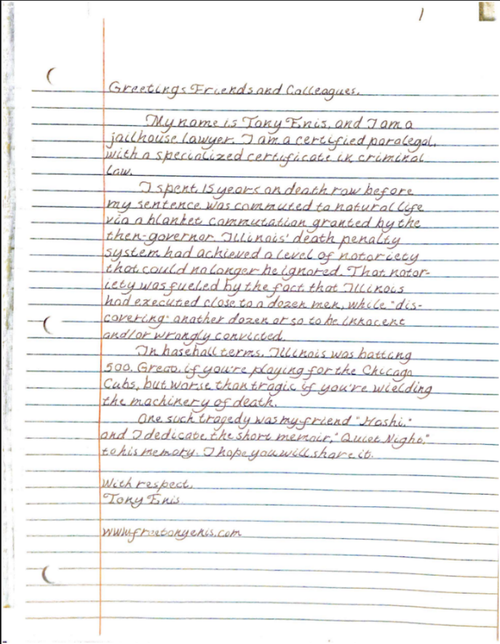 1
Greetings Friends and Colleagues,
My name is Tony Enis, and I am a
jailhouse lawyer. I am a certified paralegal,
with a specialized certificate in criminal
law.
I spent 15 years on death row before
my sentence was commuted to natural life
via a blanket commutation granted by the
then-governor. Illinois' death penalty
system had achieved a level of notoriety
that could no longer be ignored. That notor-
iety was fueled by the fact that Illinois
had executed close to a dozen men, while "dis-
covering" another dozen or so to be innocent
and/or wrongly convicted.
In baseball terms, Illinois was batting
500. Great if you're playing for the Chicago
Cubs, but worse than tragic if you're wielding
the machinery of death.
One such tragedy was my friend "Hoshi,"
and I dedicate the short memoir, "Quiet Night,"
to his memory. I hope you will share it.
With respect,
Tony Enis
www.freetonyenis.com